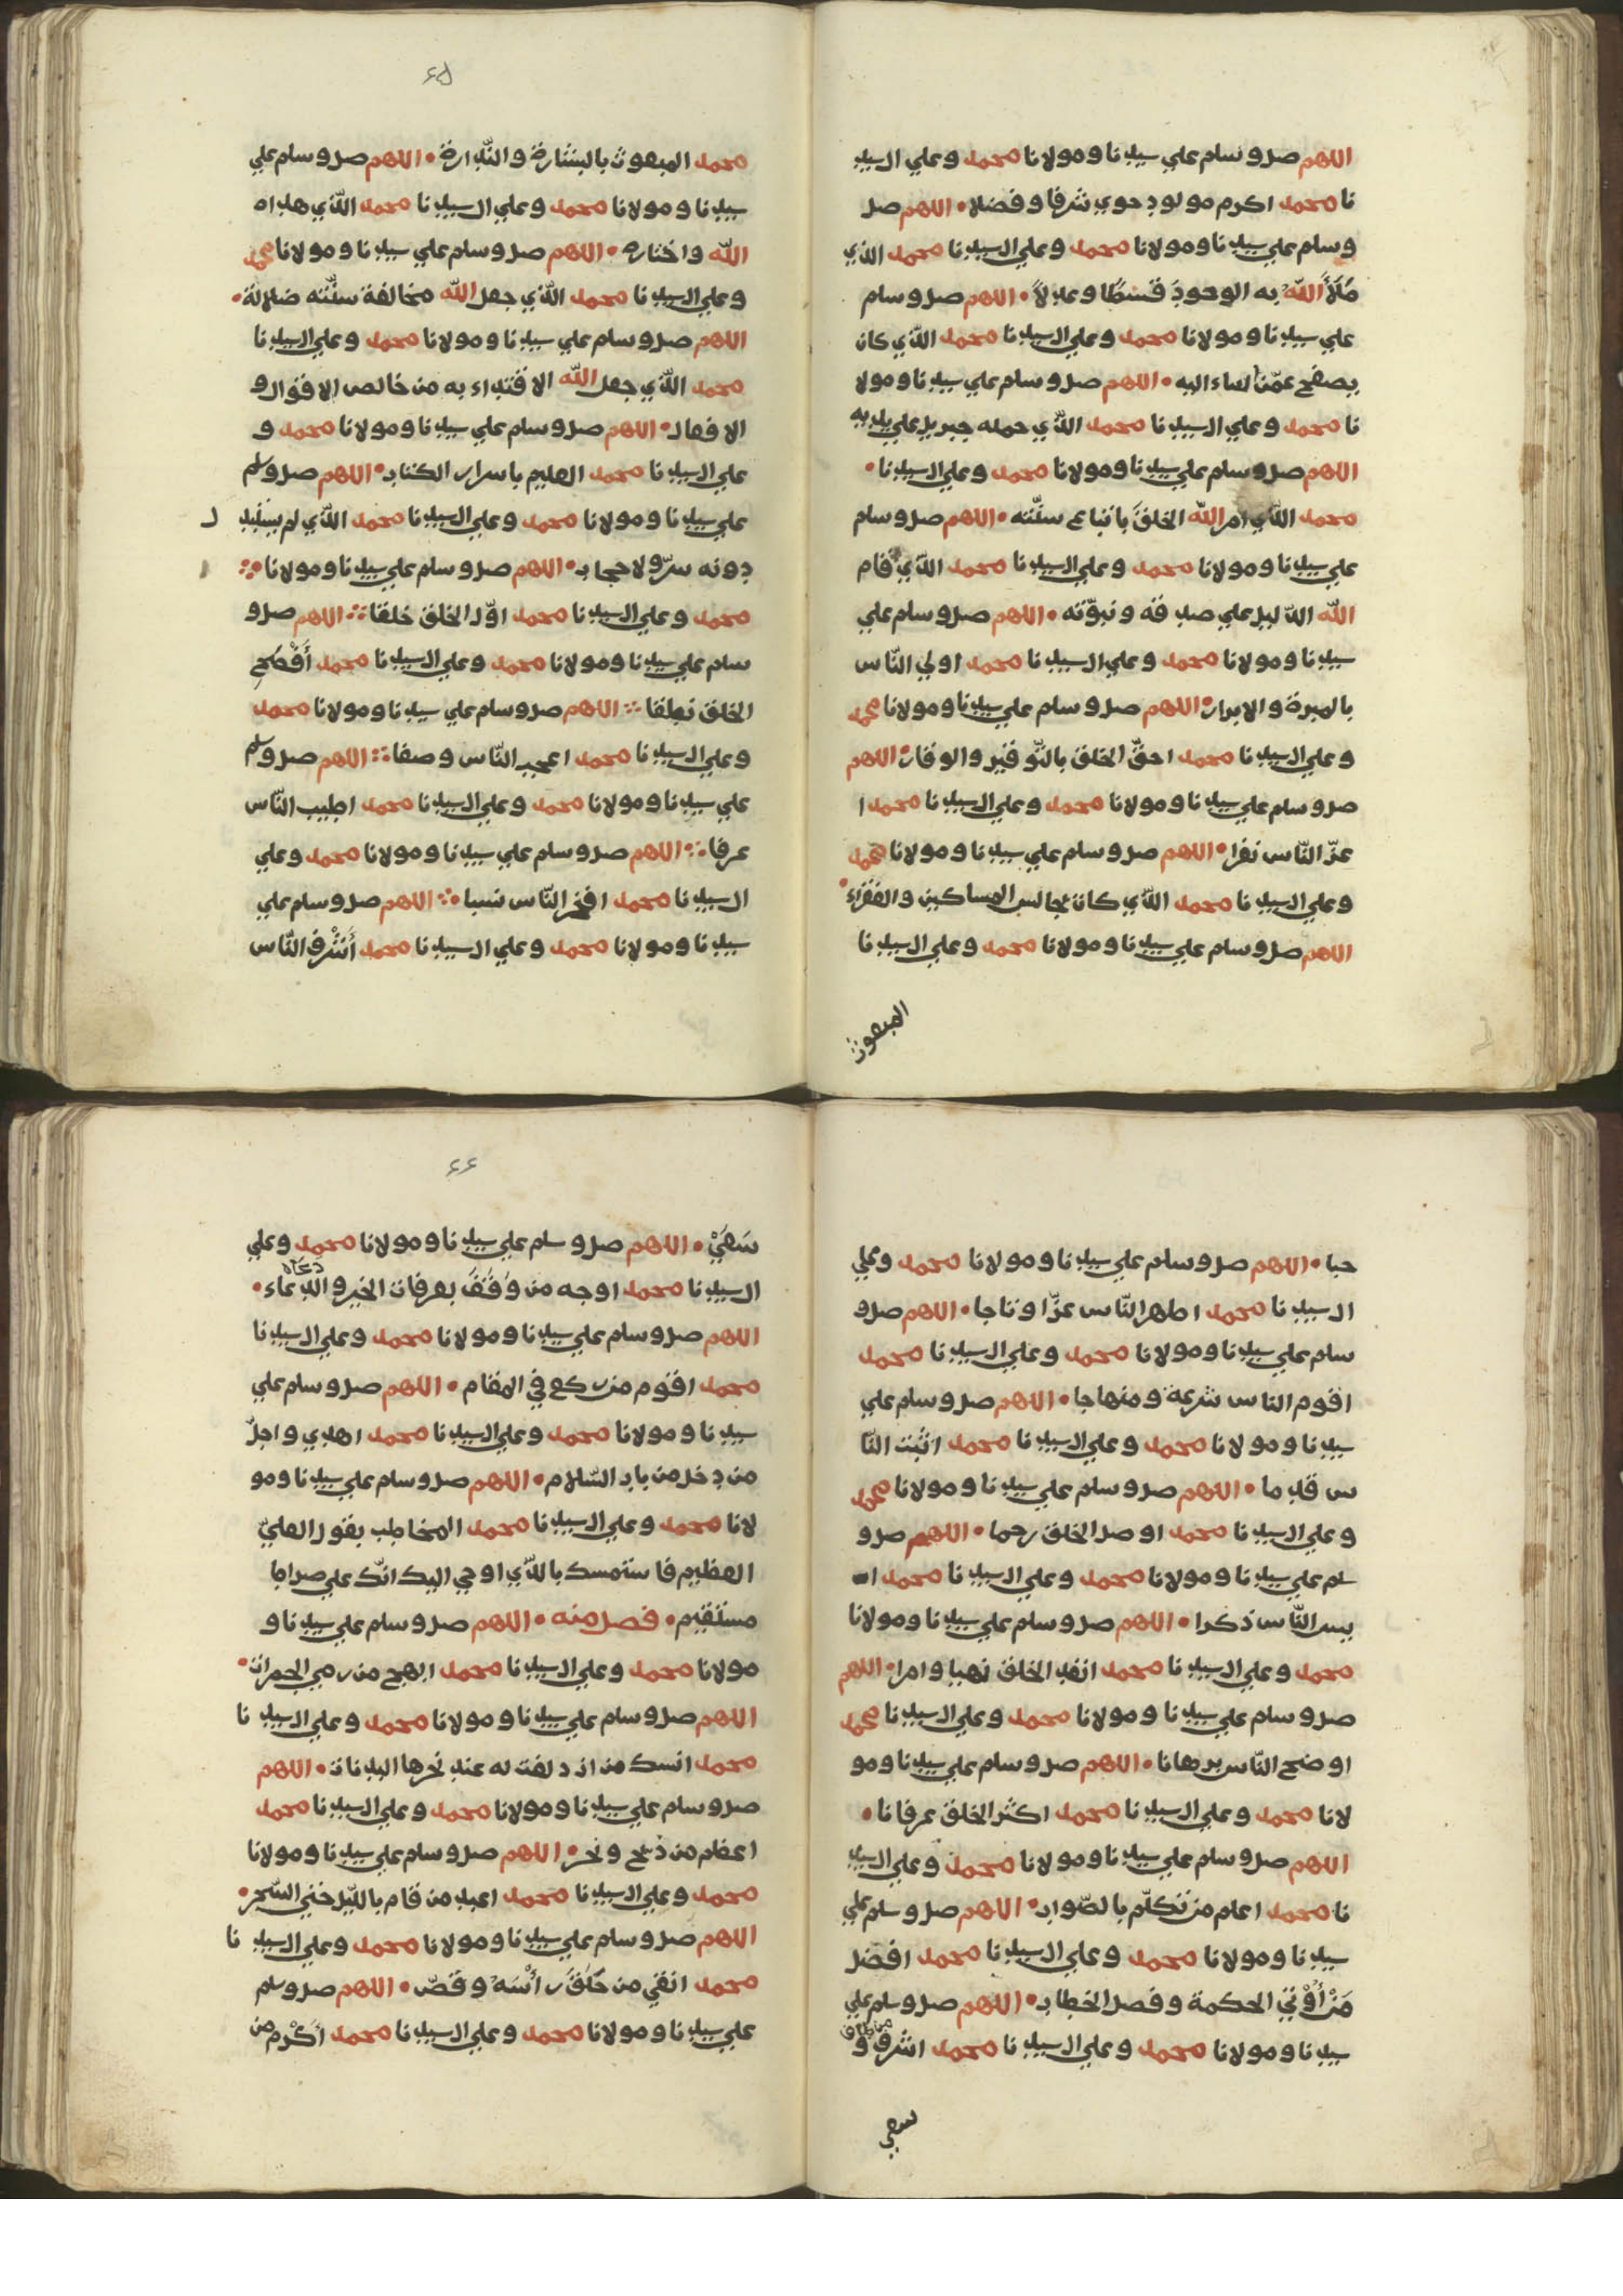 اللهم صل وسلم علي سيدنا ومولانا محمد وعلي ال سيد
نا محمد اكرم مولود حوي شرفا وفضلا • اللهم صل
وسلم علي سيدنا ومولانا محمد وعلي ال سيدنا محمد الذي
مَلَأَ اللّٰهُ به الوجودَ قسْطًا وعدلاً • اللهم صل وسلم
علي سيدنا ومولانا محمد وعلي ال سيدنا محمد الّذي كان
يصفح عمّن اساء اليه • اللهم صل وسلم علي سيدنا ومولا
نا محمد وعلي ال سيدنا محمد الذّي حمله جبريل علي يديه
اللهم صل وسلم علي سيدنا ومولانا محمد وعلي ال سيدنا •
محمد الذّي امر اللّه الخلقَ باتباع سنّته • اللهم صل وسلم
علي سيدنا ومولانا محمد وعلي ال سيدنا محمد الذّي اقام
اللّه الدّليل علي صدقه ونبوّته • اللهم صل وسلم علي
سيدنا ومولانا محمد وعلي ال سيدنا محمد اولي النّاس
بالمبرة والابرار • اللهم صل وسلم علي سيدنا ومولانا محمد
وعلي ال سيدنا محمد احقّ الخلق بالتّوقير والوقار • اللهم
صل وسلم علي سيدنا ومولانا محمد وعلي ال سيدنا محمد ا
عزّ النّاس نفرا • اللهم صل وسلم علي سيدنا ومولانا محمد
وعلي ال سيدنا محمد الذّي كان يجالس المساكين والفقراء •
اللهم صل وسلم علي سيدنا ومولانا محمد وعلي ال سيدنا
المبعوث
٦٥
محمد المبعوث بالبشارة والنّذارة • اللهم صل وسلم علي
سيدنا ومولانا محمد وعلي ال سيدنا محمد الذّي هداه
اللّه واختاره • اللهم صل وسلم علي سيدنا ومولانا محمد
وعلي ال سيدنا محمد الذّي جعل اللّه مخالفة سنّته ضلالة •
اللهم صل وسلم علي سيدنا ومولانا محمد وعلي ال سيدنا
محمد الذّي جعل اللّه الاقتداء به من خالص الاقوال و
الافعال • اللهم صل وسلم علي سيدنا ومولانا محمد و
علي ال سيدنا محمد العليم باسرار الكتاب • اللهم صل وسلم
علي سيدنا ومولانا محمد وعلي ال سيدنا محمد الذّي لم يسْدِل
دونه سترّ ولا حجاب • اللهم صل وسلم علي سيدنا ومولانا
محمد وعلي ال سيدنا محمد اوّل الخلق خلقا اللهم صل و
سلم علي سيدنا ومولانا محمد وعلي ال سيدنا محمد أفْصَحِ
الخلق نطقا اللهم صل وسلم علي سيدنا ومولانا محمد
وعلي ال سيدنا محمد اعجب النّاس وصفا اللهم صل وسلم
علي سيدنا ومولانا محمد وعلي ال سيدنا محمد اطيب النّاس
عرفا اللهم صل وسلم علي سيدنا ومولانا محمد وعلي
ال سيدنا محمد افخر النّاس نسبا اللهم صل وسلم علي
سيدنا ومولانا محمد وعلي ال سيدنا محمد أشْرف النّاس
حبا • اللهم صل وسلم علي سيدنا ومولانا محمد وعلي
ال سيدنا محمد اطهر النّاس عزّا وتاجا • اللهم صل و
سلم علي سيدنا ومولانا محمد وعلي ال سيدنا محمد
اقوم الناس شرعة ومنهاجا • اللهم صل وسلم علي
سيدنا ومولانا محمد وعلي ال سيدنا محمد اثبت النّا
س قدما • اللهم صل وسلم علي سيدنا ومولانا محمد
وعلي ال سيدنا محمد اوصل الخلق رحما • اللهم صل و
سلم علي سيدنا ومولانا محمد وعلي ال سيدنا محمد ا
يس النّاس ذكرا • اللهم صل وسلم علي سيدنا ومولانا
محمد وعلي ال سيدنا محمد انفد الخلق نهيا وامرا • اللهم
صل وسلم علي سيدنا ومولانا محمد وعلي ال سيدنا محمد
اوضح النّاس برهانا • اللهم صل وسلم علي سيدنا ومو
لانا محمد وعلي ال سيدنا محمد اكثر الخلق عرفانا •
اللهم صل وسلم علي سيدنا ومولانا محمد وعلي ال سيد
نا محمد اعلم من تكلّم بالصّواب • اللهم صل وسلم علي
سيدنا ومولانا محمد وعلي ال سيدنا محمد افضل
مَنْ أُوْتي الحكمة وفصل الخطاب • اللهم صل وسلم علي
سيدنا ومولانا محمد وعلي ال سيدنا محمد اشرف من طاف و
سعي
٦٦
سَعَيْ • اللهم صل وسلم علي سيدنا ومولانا محمد وعلي
ال سيدنا محمد اوجه من وَقَفَ بعرفات الخير والدعاء •
دعاه
اللهم صل وسلم علي سيدنا ومولانا محمد وعلي ال سيدنا
محمد اقوم من ركع في المقام • اللهم صل وسلم علي
سيدنا ومولانا محمد وعلي ال سيدنا محمد اهدي واجلّ
من دخل من باب السّلام • اللهم صل وسلم علي سيدنا ومو
لانا محمد وعلي ال سيدنا محمد المخاطب بقول العليّ
العظيم فاستمسك بالذّي اوحي اليك انّك علي صراط
مستقيم • فصل منه • اللهم صل وسلم علي سيدنا و
مولانا محمد وعلي ال سيدنا محمد ابهج من رمي الجمرات •
اللهم صل وسلم علي سيدنا ومولانا محمد وعلي ال سيدنا
محمد انسك من ازدلفت له عند نحرها البدنات • اللهم
صل وسلم علي سيدنا ومولانا محمد وعلي ال سيدنا محمد
اعظم من ذبح ونحر • اللهم صل وسلم علي سيدنا ومولانا
محمد وعلي ال سيدنا محمد اعبد من قام باللّيل حتي السّحر •
اللهم صل وسلم علي سيدنا ومولانا محمد وعلي ال سيدنا
محمد اتقي من حَلَقَ رأسَهُ وقصّر • اللهم صل وسلم
علي سيدنا ومولانا محمد وعلي ال سيدنا محمد اَكْرم من